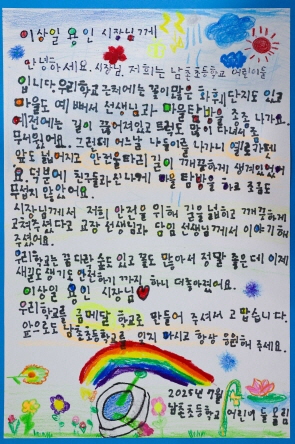 이상일 용인 시장님께
안녕하세요, 시장님. 저희는 남촌초등학교 어린이들
입니다. 우리학교 근처에는 꽃이 많은 화훼단지도 있고
마을도 예뻐서 선생님과 마을탐방을 종종 나가요.
예전에는 길이 끊어져있고 트럭도 많이 다녀서 좀
무서웠어요. 그런데 어느날 나들이를 나가니
앞도 넓어지고 안전을 따라 길이 깨끗하게 생겨있었어
요. 덕분에 친구들과 신나게 마을 탐방을 하고 조금도
무섭지 않았어요.
시장님께서 저희 안전을 위해 길을 넓히고 깨끗하게
고쳐주셨다고 교장 선생님과 담임 선생님께서 이야기해
주셨어요.
우리학교는 꿈다락숲도 있고 꽃도 많아서 정말 좋은데 이제
새길도 생기도 안전하기 까지 하니 더좋아졌어요.
이상일 용인 시장님
우리학교를 금메달 학교로 만들어 주셔서 고맙습니다.
앞으로도 남촌초등학교 잊지 마시고 항상 응원해 주세요.
2025년 7월
남촌초등학교 어린이들 올림